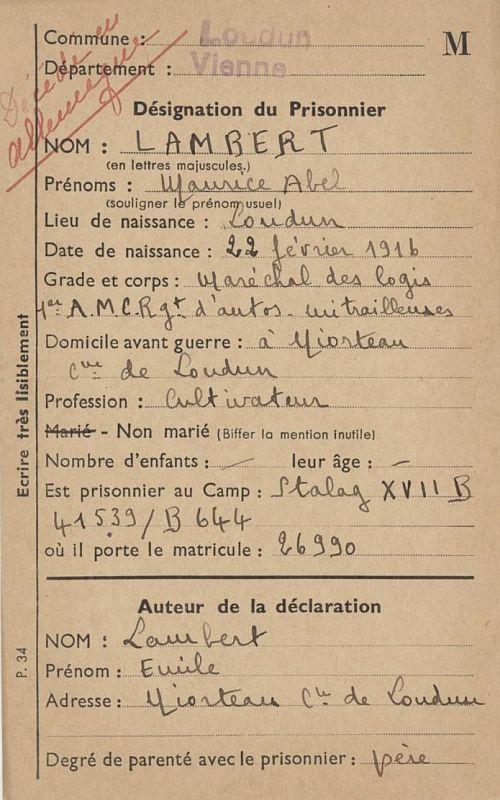 Décédé en
allemagne
Commune : Loudun
M
Département : Vienne
Désignation du Prisonnier
NOM : LAMBERT
(en lettres majuscules.)
Prénoms : Maurice Abel
(souligner le prénom usuel)
Lieu de naissance : Loudun
Date de naissance : 22 février 1916
Grade et corps : Maréchal des logis
1er A.M.C. Rgt d'autos-mitrailleuses
Domicile avant guerre : à Niorteau
Cne de Loudun
Profession : Cultivateur
Marié - Non marié (Biffer la mention inutile)
Nombre d'enfants : — leur âge : —
Est prisonnier au Camp : Stalag XVII B
41539/B 644
où il porte le matricule : 26990
Auteur de la déclaration
NOM : Lambert
Prénom : Emile
Adresse : Niorteau Cne de Loudun
Degré de parenté avec le prisonnier : père
Ecrire très lisiblement
P. 34